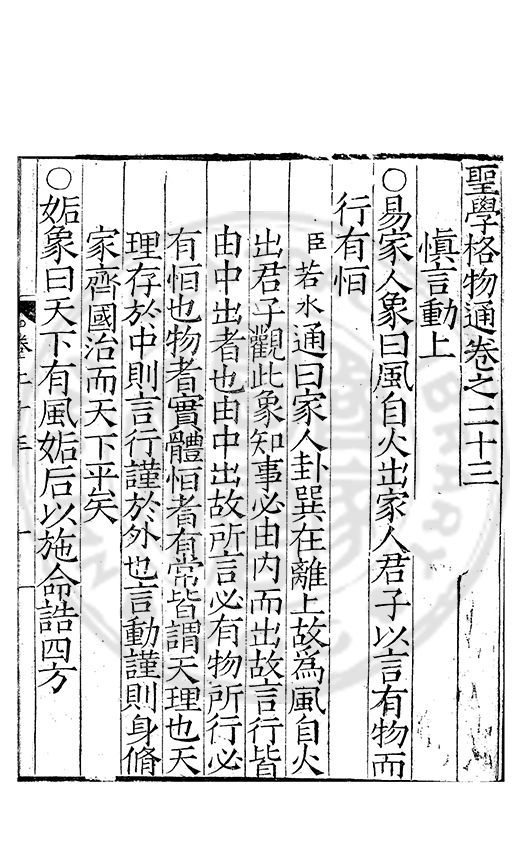 聖學格物通卷之二十三
慎言動上
○易家人象曰風自火出家人君子以言有物而
行有恒
臣若水通曰家人卦巽在離上故爲風自火
出君子觀此象知事必由内而出故言行皆
由中出者也由中出故所言必有物所行必
有恒也物者實體恒者有常皆謂天理也天
理存於中則言行謹於外也言動謹則身脩
家齊國治而天下平矣
○姤象曰天下有風姤后以施命誥四方